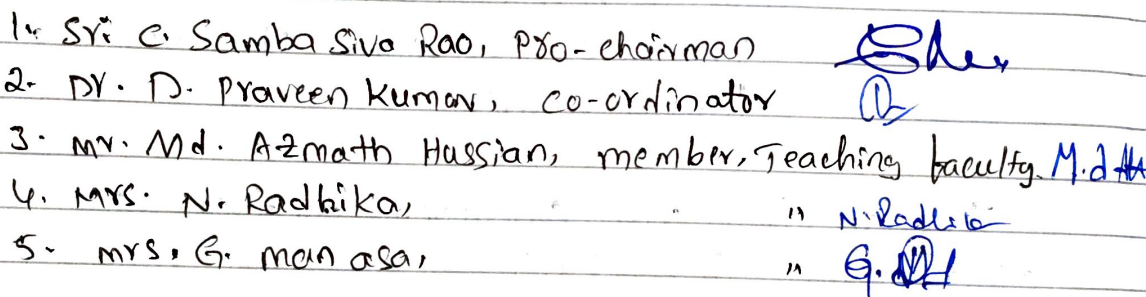 1. Sri C. Samba Siva Rao, Pro-chairman
2. Dr. D. Praveen Kumar, Co-ordinator
3. Mr. Md. Azmath Hussian, member, Teaching faculty. M.d
4. Mrs. N. Radhika, " N. Radhika
5. mrs. G. manasa, " G.